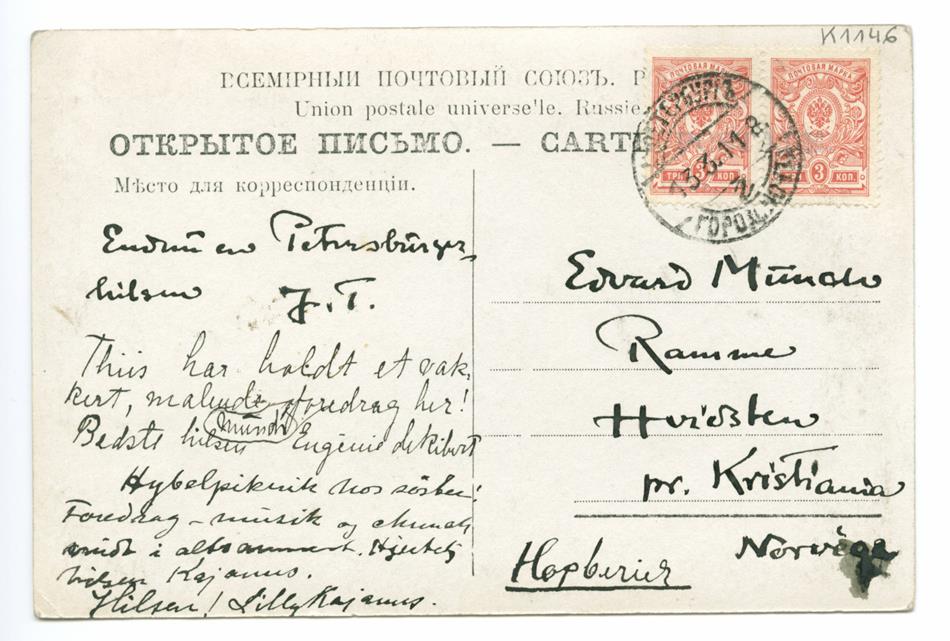 K1146
ВСЕМІРНЫИ ПОЧТОВЫЙ СОЮЗЪ. Р
Union postale universe'lle. Russie.
ОТКРЫТОЕ ПИСЬМО. — CARTE
Мѣсто для корреспонденціи.
ПОЧТОВАЯ МАРКА
ПОЧТОВАЯ МАРКА
ТРИ 3 КОП.
3 КОП.
13.3.11.8
ГОРОД.
Endnu en Petersburger
hilsen J.T.
Thiis har holdt et vak-
kert, malende foredrag her!
(mundi)
Bedste hilsen Eugénie
Hybelpiknik hos
Foredrag – musik og
i altsammen.
hilsen Kajanus.
Hilsen! Lilly Kajanus.
Edvard Münch
Ramme
Hvidsten
pr. Kristiania
Norvège
Норвегія